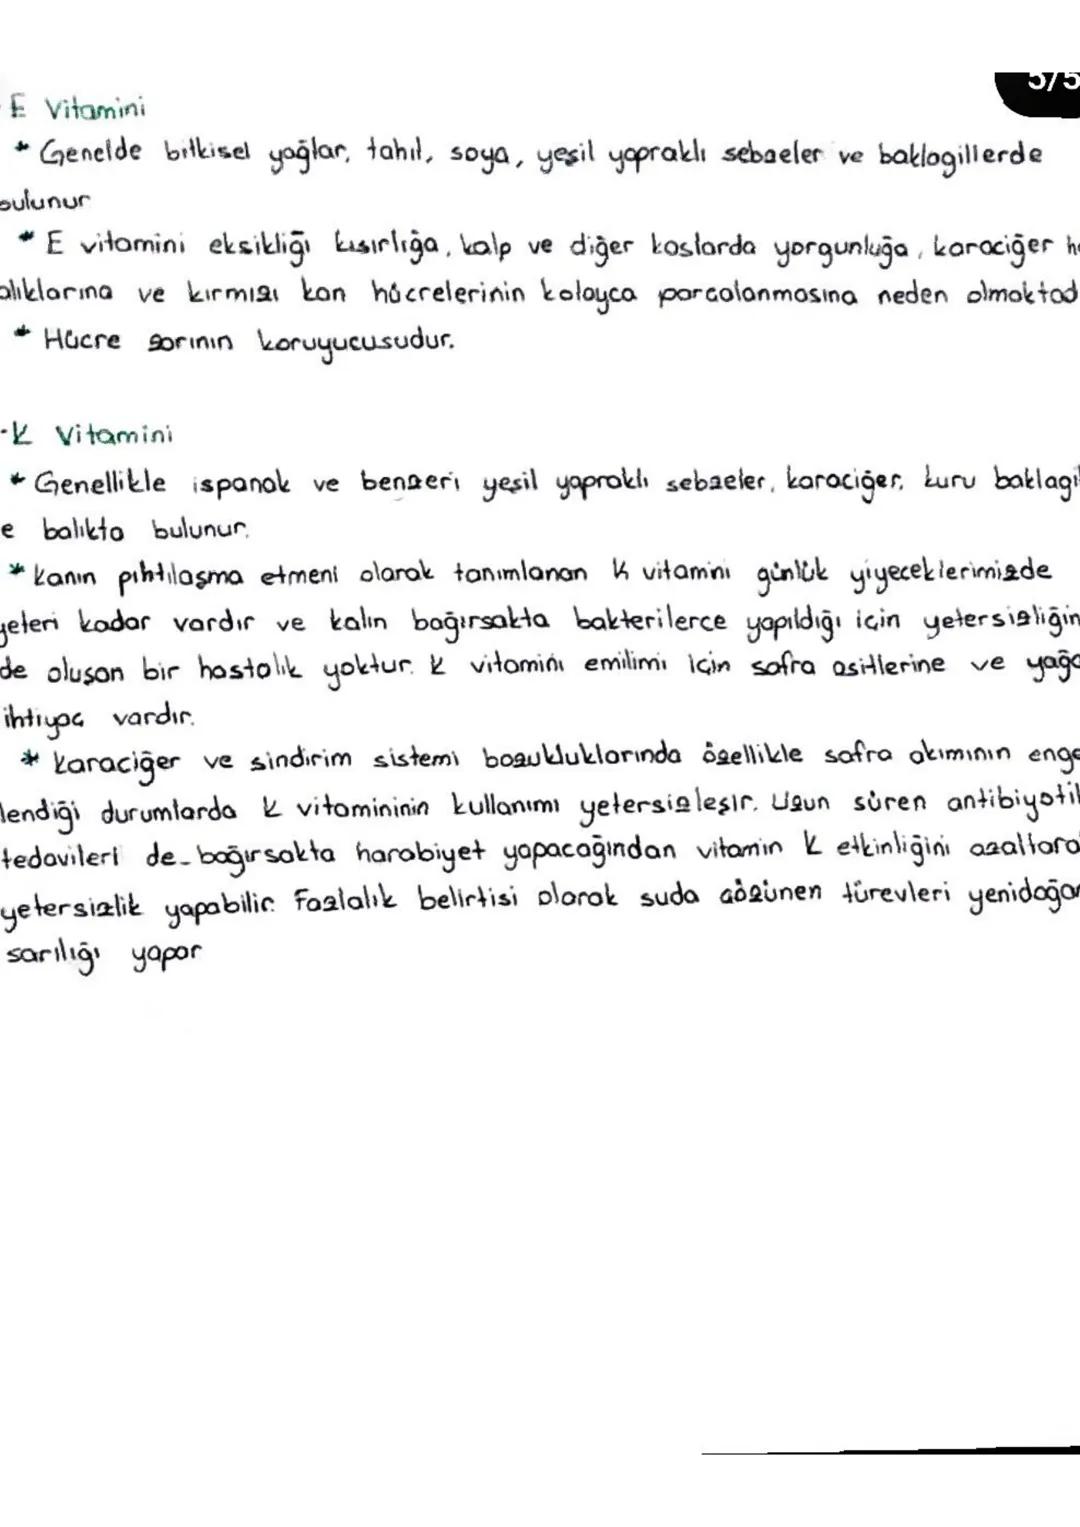 5/5
E Vitamini
* Genelde bitkisel yağlar, tahıl, soya, yeşil yapraklı sebzeler ve baklagillerde
bulunur
* E vitamini eksikliği kısırlığa, kalp ve diğer kaslarda yorgunluğa, karaciğer ha
alıklarına ve kırmızı kan hücrelerinin kolayca parçalanmasına neden olmaktad
* Hücre zarının koruyucusudur.
-K Vitamini
* Genellikle ispanak ve benzeri yeşil yapraklı sebzeler, karaciğer, kuru baklagil
e balıkta bulunur.
* Kanın pıhtılaşma etmeni olarak tanımlanan K vitamini günlük yiyeceklerimizde
yeteri kadar vardır ve kalın bağırsakta bakterilerce yapıldığı için yetersizliğin
de oluşan bir hastalık yoktur. K vitamini emilimi için safra asitlerine ve yağa
ihtiyaç vardır.
* Karaciğer ve sindirim sistemi bozukluklarında özellikle safra akımının enge
lendiği durumlarda K vitamininin kullanımı yetersizleşir. Uzun süren antibiyotik
tedavileri de bağırsakta harabiyet yapacağından vitamin K etkinliğini azaltara
yetersizlik yapabilir. Fazlalık belirtisi olarak suda çözünen türevleri yenidoğan
sarılığı yapar